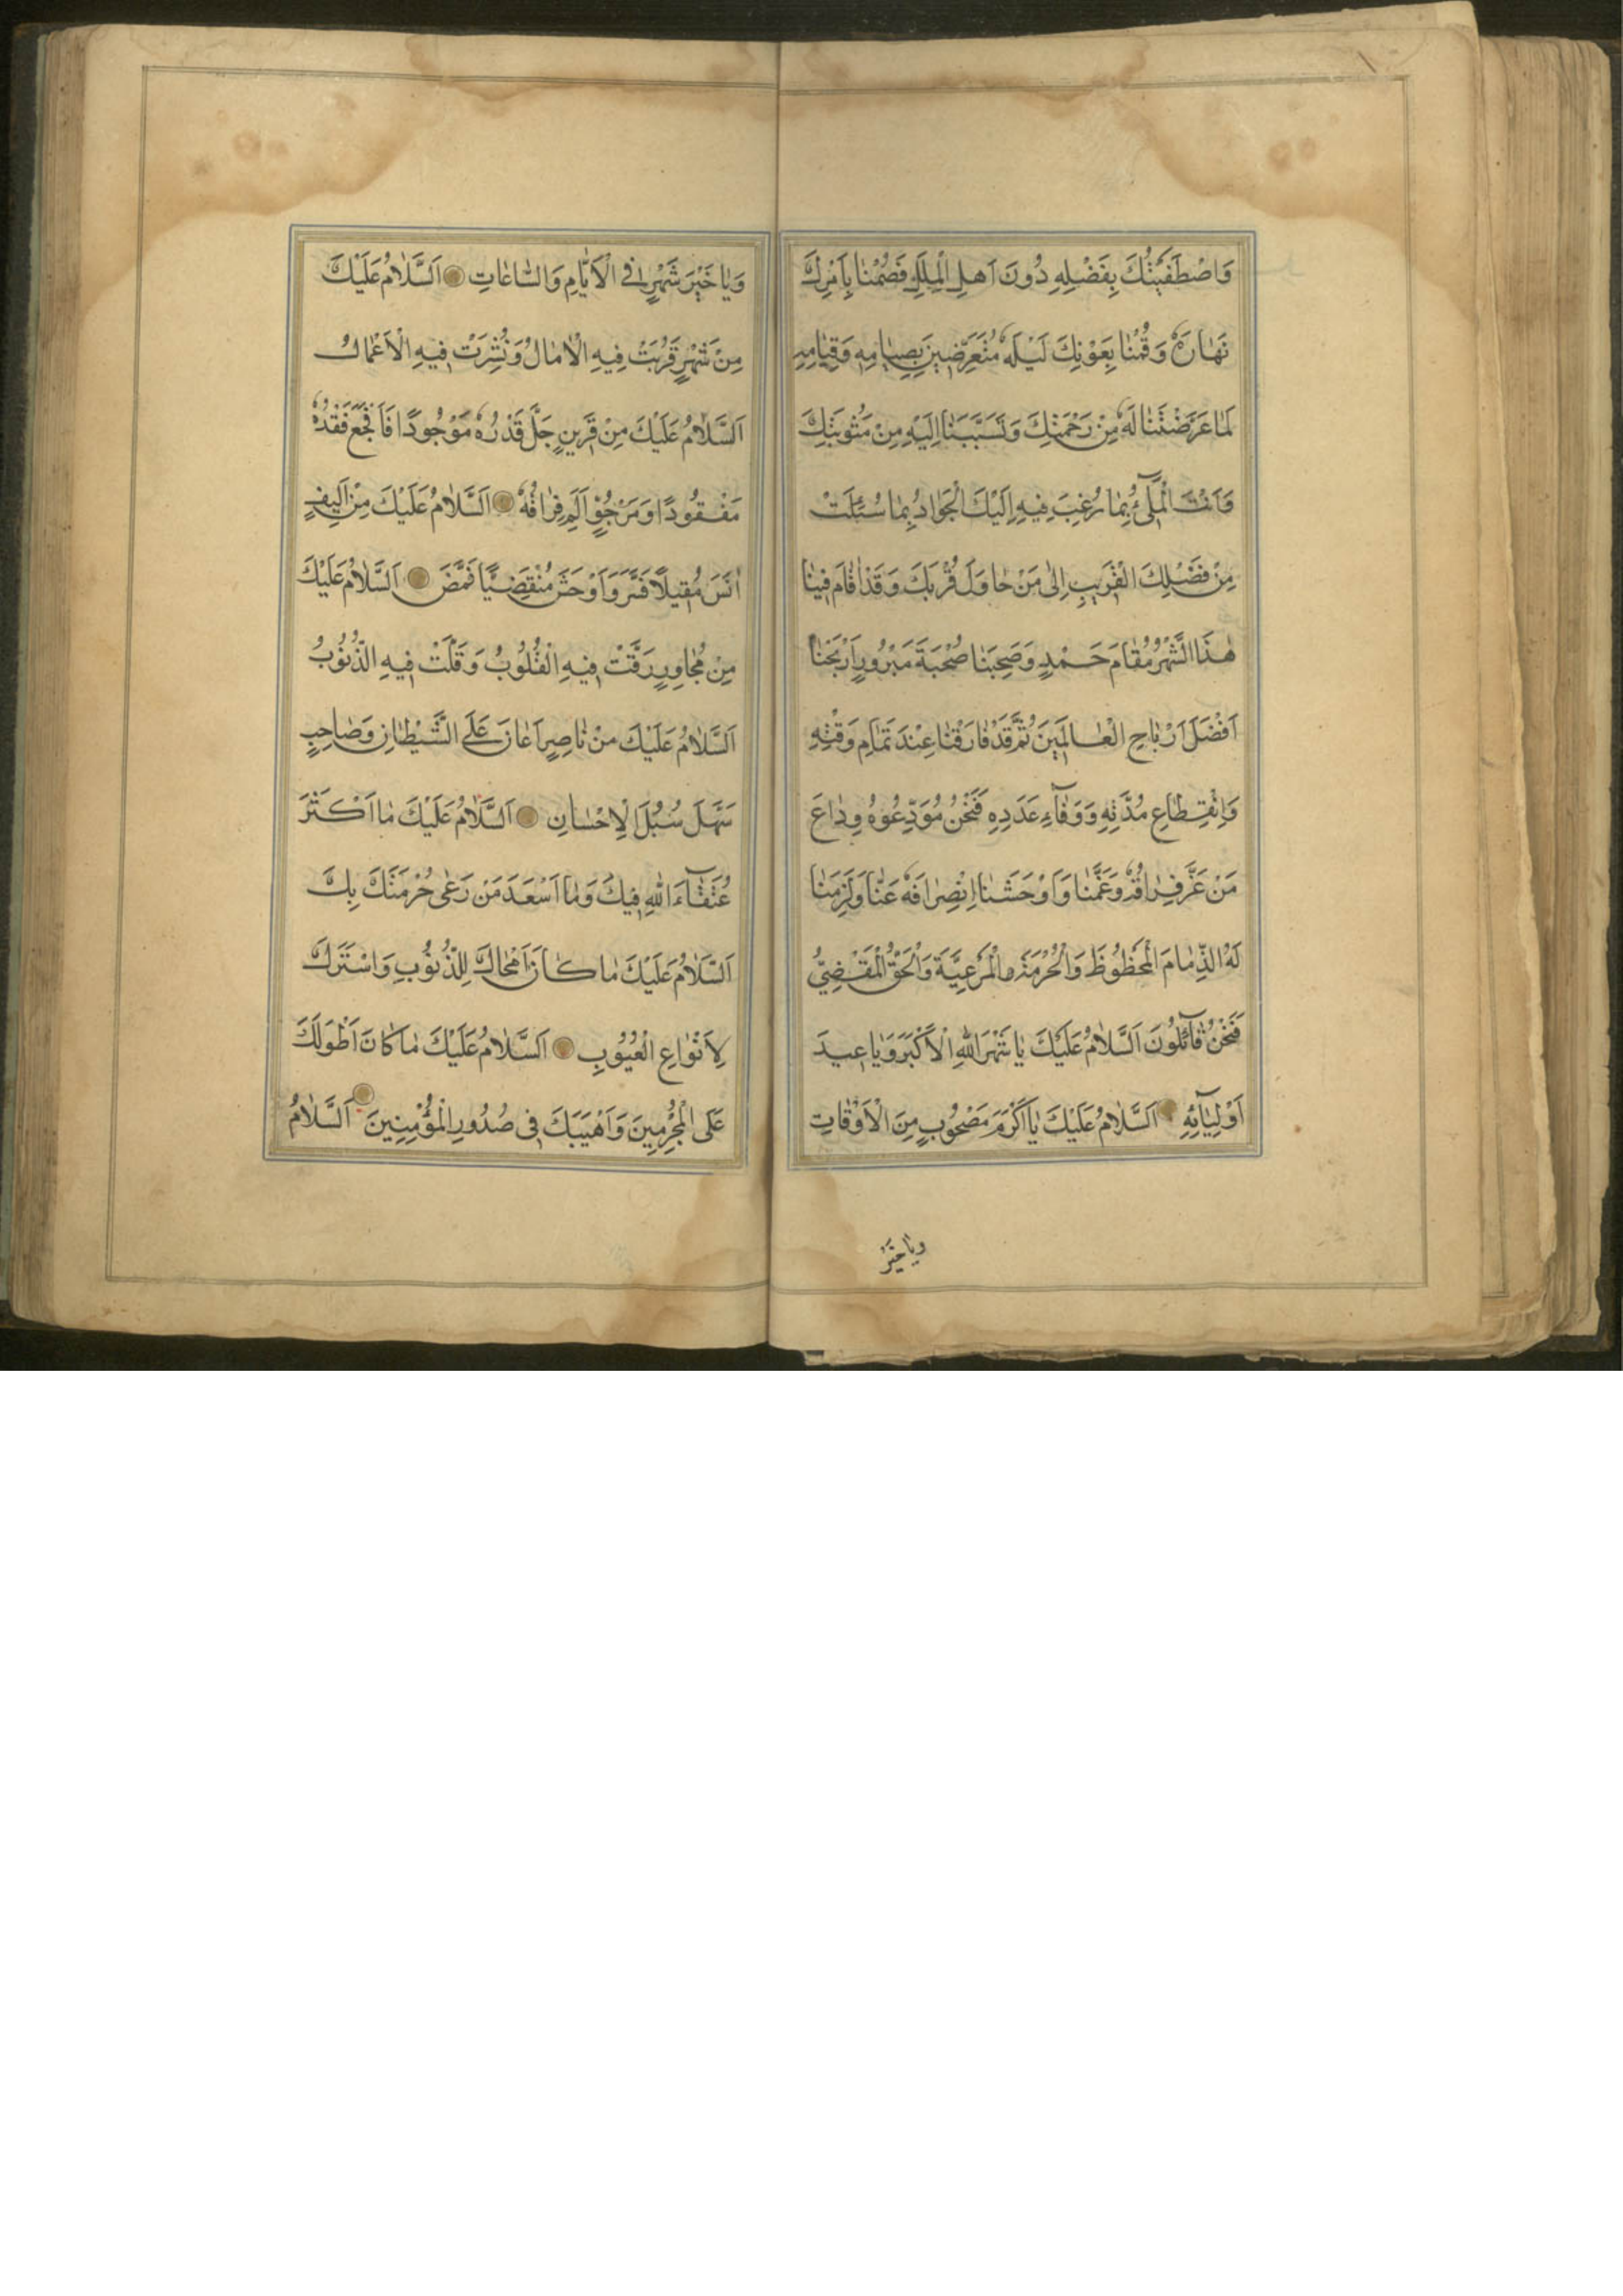 وَاصْطَفَيْتَكَ بِفَضْلِهِ دُونَ اَهلِ الْمِلَلِ فَصُمْنٰا بِاَمْرِكَ
نَهٰارَهُ وَقُمْنٰا بِعَوْنِكَ لَيْلَهُ مُتَعَرِّضِينَ بِصِيٰامِهِ وَقِيٰامِهِ
لِمٰا عَرَّضْتَنٰا لَهُ مِنْ رَحْمَتِكَ وَتَسَبَّبَنٰا اِلَيْهِ مِنْ مَثُوبَتِكَ
وَاَنْتَ الْمَلِىٓءُ بِمٰا رُغِبَ فِيهِ اِلَيْكَ الْجَوٰادُ بِمٰا سُئِلَتْ
مِنْ فَضْلِكَ الْقَرِيبِ اِلٰى مَنْ حٰاوَلَ قُرْبَكَ وَقَدْ اَقٰامَ فِينٰا
هٰذَا الشَّهْرُ مُقٰامَ حَمْدٍ وَصَحِبَنٰا صُحْبَةَ مَبْرُورٍ اَرْبَحَنٰا
اَفْضَلَ اَرْبٰاحِ الْعٰالَمِينَ ثُمَّ قَدْ فٰارَقَنٰا عِنْدَ تَمٰامِ وَقْتِهِ
وَانْقِطٰاعِ مُدَّتِهِ وَوَفٰآءِ عَدَدِهِ فَنَحْنُ مُوَدِّعُوهُ وِدٰاعَ
مَنْ عَزَّ فِرٰاقُهُ وَغَمَّنٰا وَاَوْحَشَنٰا اِنْصِرٰافُهُ عَنّٰا وَلَزِمَنٰا
لَهُ الذِّمٰامَ الْمَحْظُوظَ وَالْحُرْمَةُ الْمَرْعِيَّةَ وَالْحَقُّ الْمَقْضِيُّ
فَنَحْنُ قٰآئِلُونَ اَلسَّلٰامُ عَلَيْكَ يٰا شَهْرَ اللهِ الْاَكْبَرَ وَيٰا عِيدَ
اَوْلِيٰآئِهِ اَلسَّلٰامُ عَلَيْكَ يٰا اَكْرَمَ مَصْحُوبٍ مِنَ الْاَوْقٰاتِ
ويا خير
وَيٰا خَيْرَ شَهْرٍ فِى الْاَيّٰامِ وَالسّٰاعٰاتِ اَلسَّلٰامُ عَلَيْكَ
مِنْ شَهْرٍ قَرُبَتْ فِيهِ الْاٰمٰالُ وَنُشِرَتْ فِيهِ الْاَعْمٰالُ
اَلسَّلٰامُ عَلَيْكَ مِنْ قَرِينٍ جَلَّ قَدْرُهُ مَوْجُودًا فَاَفْجَعَ فَقْدُهُ
مَفْقُودًا وَمَرْجُوٍّ اٰلَمَ فِرٰاقُهُ اَلسَّلٰامُ عَلَيْكَ مِنْ اَلِيفٍ
اٰنَسَ مُقِبلاً فَسَرَّ وَاَوْحَشَ مُنْقَضِيًا فَمَضَّ اَلسَّلٰامُ عَلَيْكَ
مِنْ مُجٰاوِرٍ رَقَّتْ فِيهِ الْقُلُوبُ وَقَلَّتْ فِيهِ الذُّنُوبُ
اَلسَّلٰامُ عَلَيْكَ مِنْ نٰاصِرٍ اَعٰانَ عَلَى الشَّيْطٰانِ وَصٰاحِبٍ
سَهَّلَ سُبُلَ الْاِحْسٰانِ اَلسَّلٰامُ عَلَيْكَ مٰا اَكْثَرَ
عُتَقٰآءَ اللهِ فِيكَ وَمٰا اَسْعَدَ مَنْ رَعٰى حُرْمَتَكَ بِكَ
اَلسَّلٰامُ عَلَيْكَ مٰا كٰانَ اَمْحٰاكَ لِلذُّنُوبِ وَاسْتَرَكَ
لِاَنْوٰاعِ الْعُيُوبِ اَلسَّلٰامُ عَلَيْكَ مٰا كٰانَ اَطْوَلَكَ
عَلَى الْمُجْرِمِينَ وَاَهْيَبَكَ فِى صُدُورِ الْمُؤْمِنِينَ اَلسَّلٰامُ